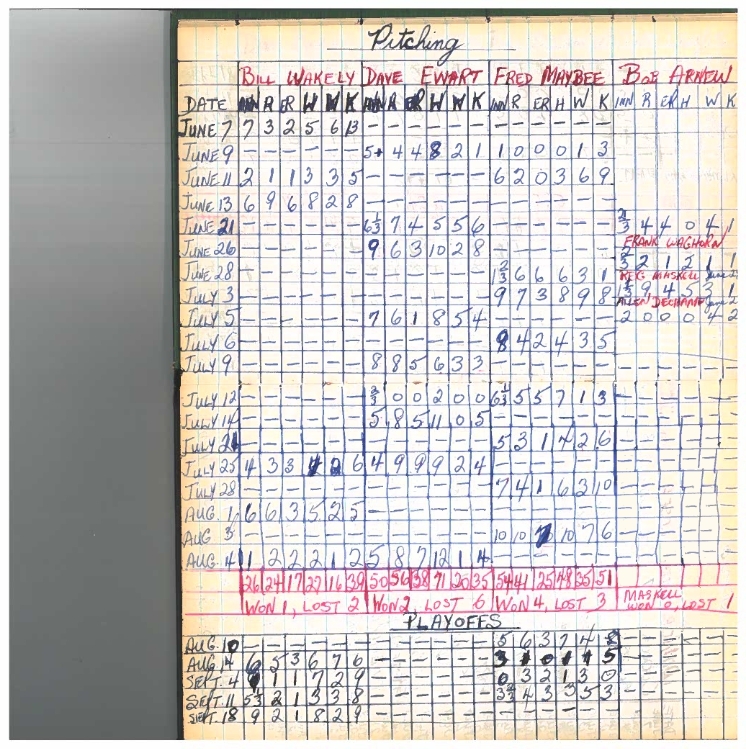 Pitching
BILL WAKELY DAVE EWART FRED MAYBEE BOB ARNEW
DATE INN R ER W K INN R ER W K INN R ER H W K INN R ER H W K
JUNE 7 7 3 2 5 6 13 - - - - - - - - - - - -
JUNE 9 - - - - - - 5+ 4 4 8 2 1 1 0 0 0 1 3
JUNE 11 2 1 1 3 3 5 - - - - - - 6 2 0 3 6 9
JUNE 13 6 9 6 8 2 8 - - - - - - - - - - - -
JUNE 21 - - - - - - 6 1/3 7 4 5 5 6 - - - - - - 2/3 4 4 0 4 1
FRANK WAGHORN
JUNE 26 - - - - - - 9 6 3 10 2 8 - - - - - - 2/3 2 1 2 1 1
JUNE 28 - - - - - - - - - - - - 1 2/3 6 6 6 3 1 REG MASKELL
JULY 3 - - - - - - - - - - - - 9 7 3 8 9 8 1 1/3 9 4 5 3 1
ALLEN DECHAMP
JULY 5 - - - - - - 7 6 1 8 5 4 - - - - - - 2 0 0 0 4 2
JULY 6 - - - - - - - - - - - - 8 4 2 4 3 5
JULY 9 - - - - - - 8 8 5 6 3 3 - - - - - -
JULY 12 - - - - - - 2/3 0 0 2 0 0 6 1/3 5 5 7 1 3
JULY 14 - - - - - - 5 8 5 11 0 5 - - - - - -
JULY 21 - - - - - - - - - - - - 5 3 1 4 2 6
JULY 25 4 3 3 4 2 6 4 9 9 9 2 4 - - - - - -
JULY 28 - - - - - - - - - - - - 7 4 1 6 3 10
AUG. 1 6 6 3 5 2 5 - - - - - - - - - - - -
AUG 3 - - - - - - - - - - - - 10 10 7 10 7 6
AUG. 4 1 2 2 2 1 2 5 8 7 12 1 4 - - - - - -
26 24 17 27 16 39 50 56 38 71 20 35 54 41 25 48 35 51 MASKELL
WON 1, LOST 2 WON 2, LOST 6 WON 4, LOST 3 WON 0, LOST 1
PLAYOFFS
AUG. 10 - - - - - - - - - - - - 5 6 3 7 4 8
AUG 14 6 5 3 6 7 6 - - - - - - 3 1 0 1 1 5
SEPT. 4 9 1 1 7 2 9 - - - - - - 0 3 2 1 3 0
SEPT. 11 5 2/3 2 1 3 3 8 - - - - - - 3 2/3 4 3 3 5 3
SEPT. 18 9 2 1 8 2 9 - - - - - - - - - - - -